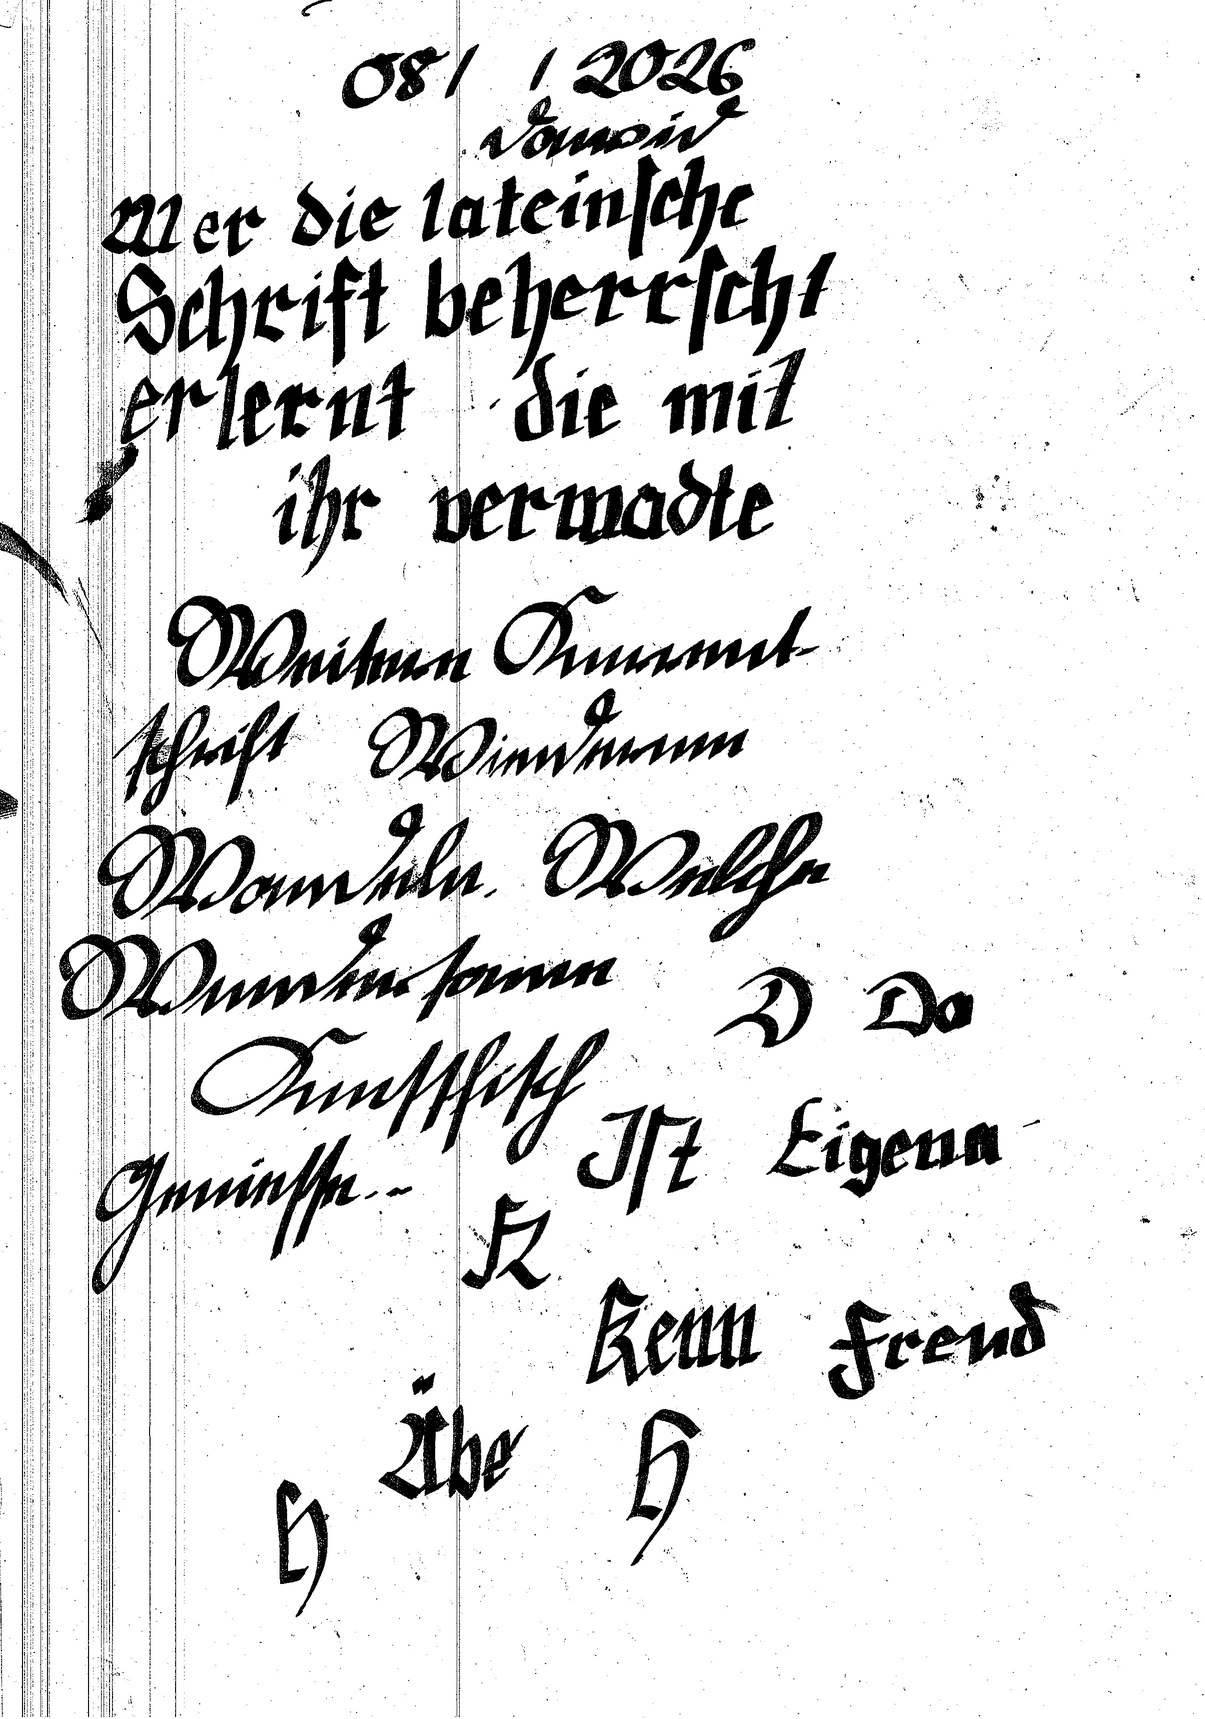 08/ / 2026
Wer die lateinſche
Schrift beherrſcht
erlernt die mit
ihr vermadte
Weitere Kurrent-
schrift Wiederum
Wandeln. Welche
Wundersame
D Da
Kunſt
Iſt Eigena
Genieſſe..-
K
Kenn Freud
Äbe H
H